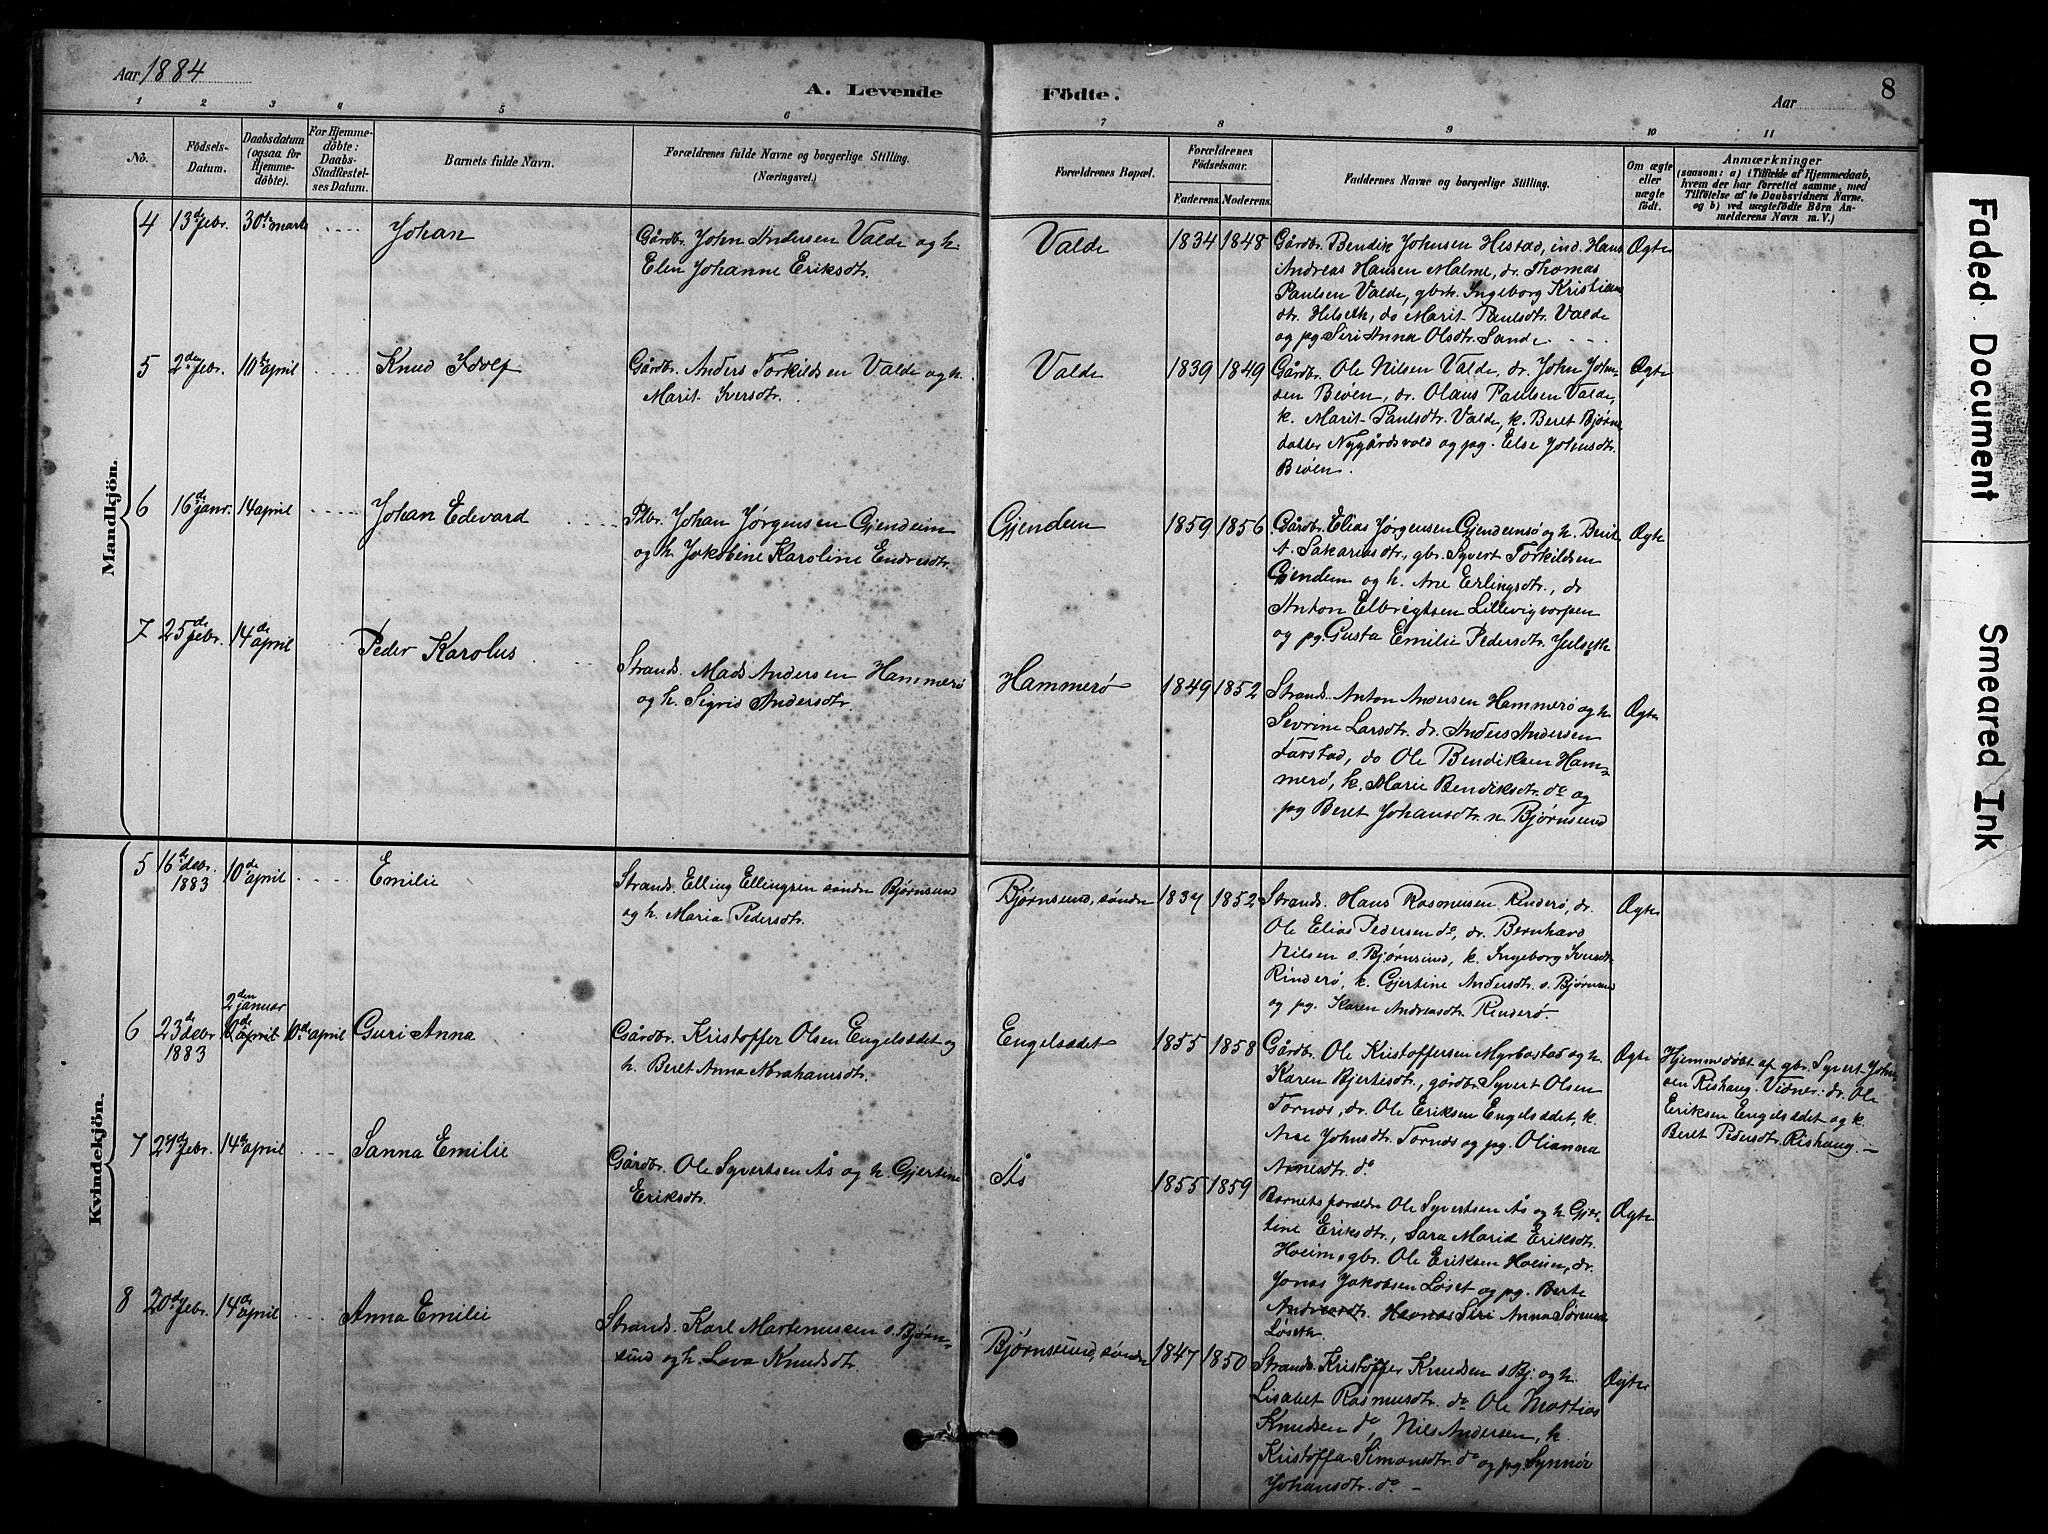 Aar 1884
A. Levende
Födte.
Aar
8
1 2 3 4 5 6 7 8 9 10 11
No.
Födsels-
Datum.
Daabsdatum
(ogsaa for
Hjemme-
döbte).
For Hjemme-
döbte:
Daabs-
Stadfæstel-
ses Datum.
Barnets fulde Navn.
Forældrenes fulde Navne og borgerlige Stilling.
(Næringsvei.)
Forældrenes Bopæl.
Forældrenes
Födselsaar.
Faderens. Moderens.
Faddernes Navne og borgerlige Stilling.
Om ægte
eller
uægte
födt.
Anmærkninger
(saasom: a) i Tilfælde af Hjemmedaab,
hvem der har forrettet samme, med
Tilföielse af to Daabsvidners Navne.
og b) ved uægtefödte Börn An-
melderens Navn m. V.)
Mandkjön.
4 13de febr. 30te marts Johan
Gårdbr. John Andersen Valde og h.
Elen Johanne Eriksdtr.
Valde 1834 1848
Gårdbr. Bendik Johnsen Hestad, ind. Hans
Andreas Hansen Malme, dr. Thomas
Paulsen Valde, gbrk. Ingeborg Kristians
dtr. Helseth, do Marit Paulsdtr. Valde
og pg Siri Anna Olsdtr. Sande
Ægte
5 2de febr. 10de april Knud Idolf
Gårdbr. Anders Torkildsen Valde og h.
Marit Iversdtr.
Valde 1839 1849
Gårdbr. Ole Nilsen Valde, dr. John John-
sen Beöen, dr. Olaus Paulsen Valde,
k. Marit Paulsdtr. Valde, k. Beret Bjørns
datter Nygårdsvold og pg. Else Johnsdtr.
Beöen.
Ægte
6 16de janr. 14 april Johan Edevard
Plbr. Johan Jørgensen Gjendem
og h. Jakobine Karoline Endresdtr.
Gjendem 1859 1856
Gårdbr. Elias Jørgensen Gjendemsø og h. Berit
A. Sakariasdtr., gbr. Syvert Torkildsen
Gjendem og h. Ane Erlingsdtr., dr
Anton Elbrigtsen Lillevigvorpen
og pg. Gusta Emilie Pedersdtr. Julseth
Ægte
7 25de febr. 14de april Peder Karolus
Strands. Mads Andersen Hammerø
og h. Sigrid Andersdtr.
Hammerø 1849 1852
Strands. Anton Andersen Hammerø og h.
Sevrine Larsdtr. dr. Anders Andersen
Farstad, do Ole Bendiksen Ham-
merø, k. Marie Bendiksdtr. do og
pg Beret Johansdtr. n Bjørnsund
Ægte
Kvindekjön.
5 16de debr. 1883 10de april Emilie
Strands. Elling Ellingsen søndre Bjørnsund
og h. Maria Pedersdtr.
Bjørnsund, søndre 1837 1852
Strands. Hans Rasmusen Rinderø, dr.
Ole Elias Pedersen do, dr. Bernhard
Nilsen s. Bjørnsund, k. Ingeborg Iversdtr
Rinderø, k. Gjertine Andersdtr. s. Bjørnsund
og pg. Karen Andreasdtr. Rinderø.
Ægte
6 23de debr. 1883 2den januar 10de april 10de april Guri Anna
Gårdbr. Kristoffer Olsen Engelsædet og
h. Beret Anna Abrahamsdtr.
Engelsædet 1855 1858
Gårdbr. Ole Kristoffersen Myrbostad og h.
Karen Bjertesdtr., gårdbr. Syvert Olsen
Tornes, dr. Ole Eriksen Engelsædet, k.
Ane Johnsdtr. Tornes og pg. Olianna
Arnesdtr. do
Ægte
Hjemmedøbt af gbr. Syvert John-
sen Rishaug. Vidner: dr. Ole
Eriksen Engelsædet og k.
Beret Pedersdtr. Rishaug. —
7 27de febr. 14de april Sanna Emilie
Gårdbr. Ole Syvertsen Ås og h. Gjertine
Eriksdtr.
Ås 1855 1859
Barnets forældre Ole Syvertsen Ås og h Gjer-
tine Eriksdtr., Sara Marie Eriksdtr.
Hoeim, gbr. Ole Eriksen Hoeim, dr.
Jonas Jakobsen Løset og pg. Berte
Havnås Siri Anna Sørensd
Løseth.
Ægte
8 20de febr. 14de april Anna Emilie
Strands. Karl Martinusen s. Bjørn-
sund og h. Lova Knudsdtr.
Bjørnsund, søndre 1847 1850
Strands. Kristoffer Knudsen s. Bj. og h.
Lisabet Rasmusdtr. do Ole Mattias
Knudsen do, Nils Andersen, k.
Kristoffa Simonsdtr. do og pg. Synnør
Johansdtr. do —
Ægte
Faded Document
Smeared Ink